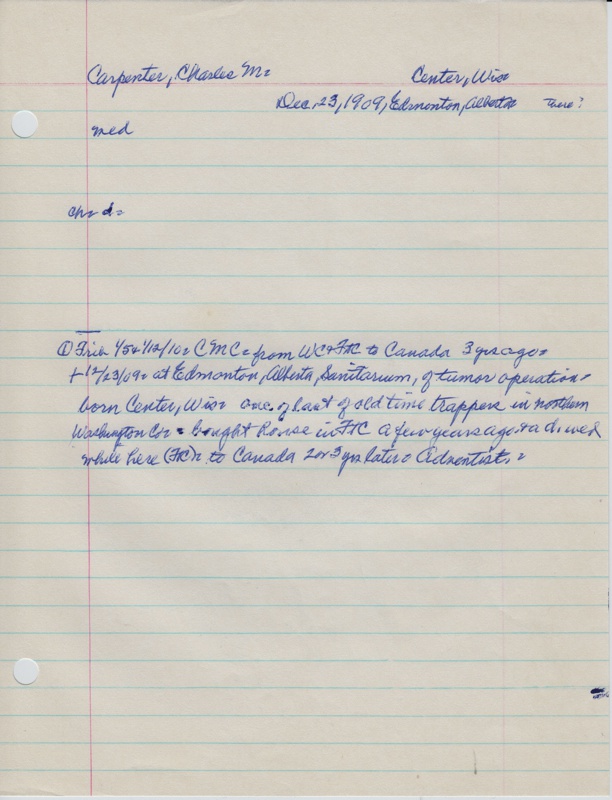 Carpenter, Charles M= Center, Wis=
Dec. 23, 1909, Edmonton, Alberta there?
med
ch= d=
① Fria 1/5 & 1/12/10= C M C= from WC & FtC to Canada 3 yrs ago=
+ 12/23/09= at Edmonton, Alberta, Sanitarium, of tumor operation=
born Center, Wis= one of last of old time trappers in northern
Washington Co= bought house in FtC a few years ago & a d. wed
while here (FtC)= to Canada 2 or 3 yrs later= Adventist. =